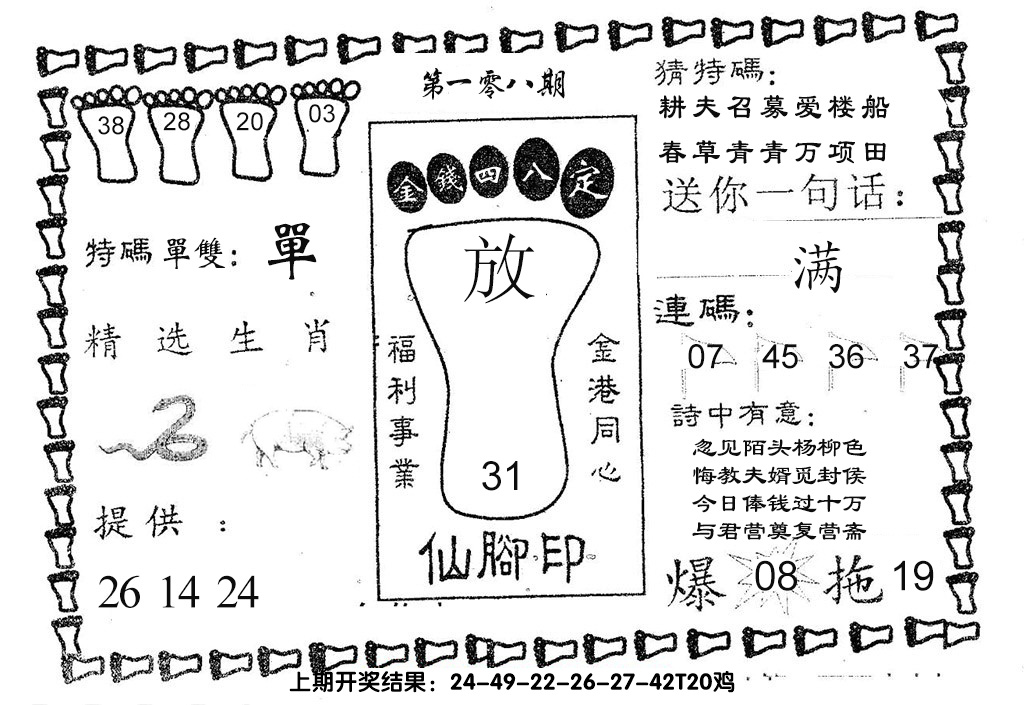 38 28 20 03
特碼單雙：單
精选生肖
提供：
26 14 24
第一零八期
金錢四八定
放
福利事業
金港同心
31
仙腳印
猜特碼：
耕夫召募爱楼船
春草青青万项田
送你一句话：
满
連碼：
07 45 36 37
詩中有意：
忽见陌头杨柳色
悔教夫婿觅封侯
今日俸钱过十万
与君营奠复营斋
爆 08 拖 19
上期开奖结果：24-49-22-26-27-42T20鸡